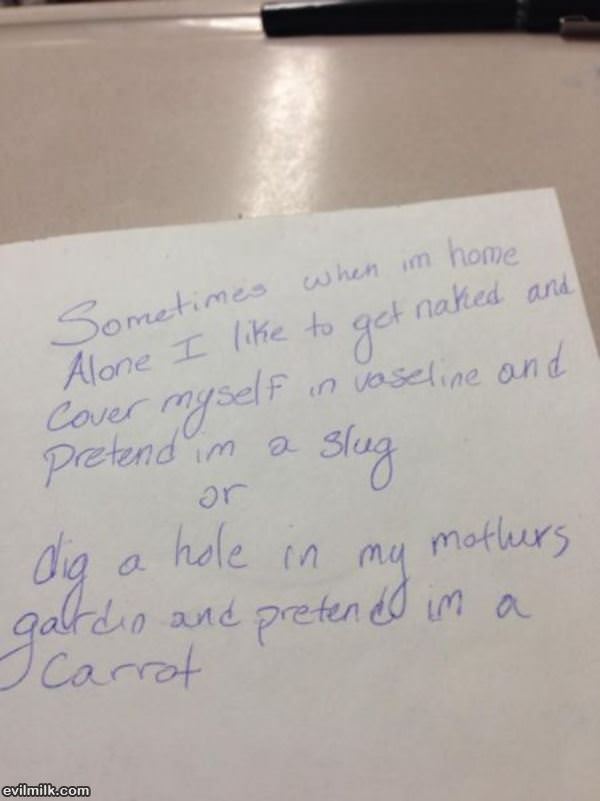 Sometimes when im home
Alone I like to get naked and
Cover myself in vaseline and
Pretend im a slug
or
dig a hole in my mothers
garden and pretend im a
Carrot
evilmilk.com